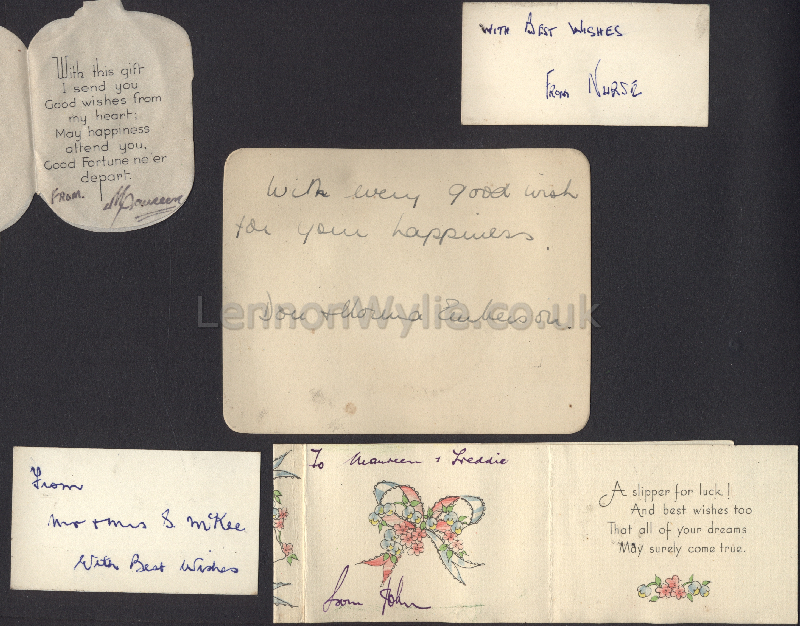 With this gift
I send you
Good wishes from
my heart;
May happiness
attend you,
Good Fortune ne'er
depart.
FROM.
WITH BEST WISHES
FROM NURSE
With every good wish
for your happiness.
Don & Norma
LennonWylie.co.uk
From
Mr & Mrs S. McKee
With Best Wishes
To Maureen & Freddie
from John
A slipper for luck!
And best wishes too
That all of your dreams
May surely come true.